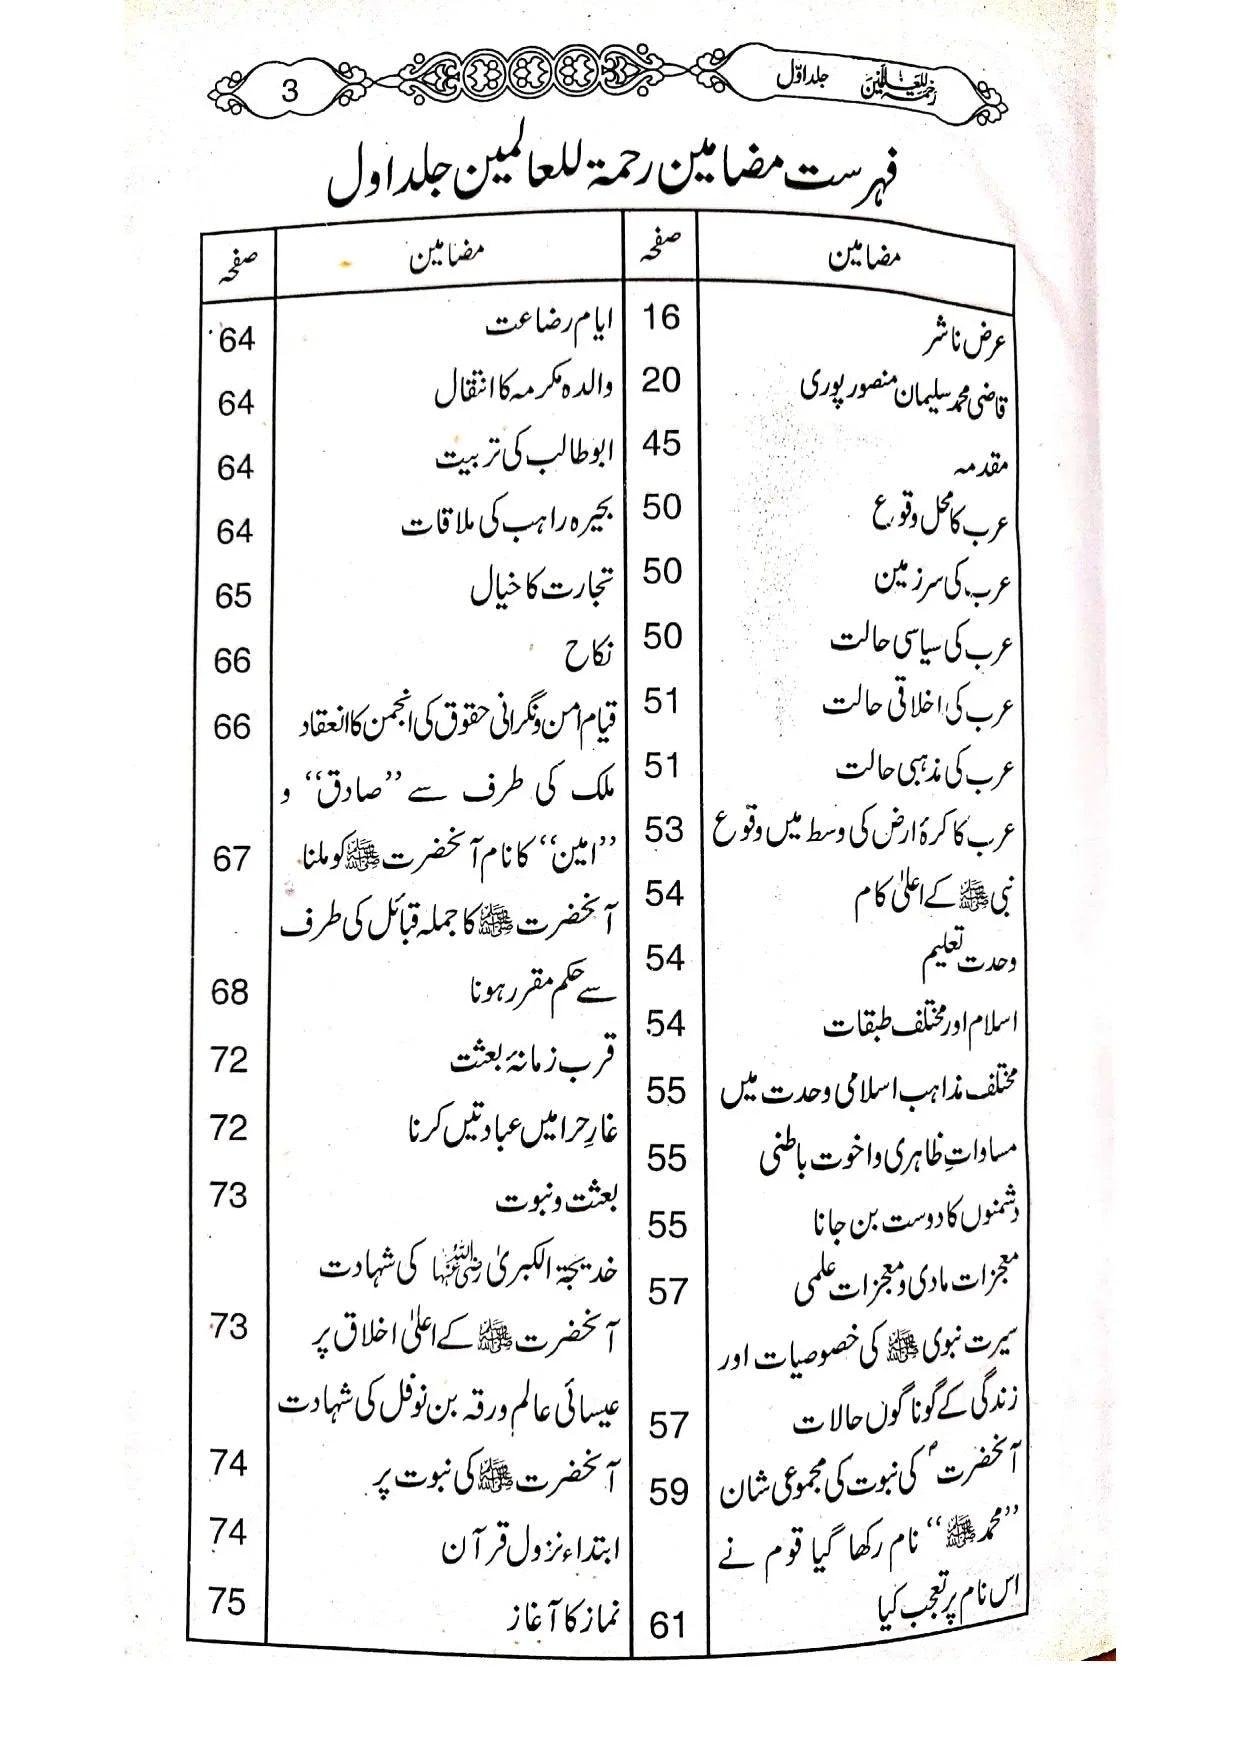 رحمۃ للعالمین جلد اوّل 3
فہرست مضامین رحمۃ للعالمین جلد اول
مضامین صفحہ
عرض ناشر 16
قاضی محمد سلیمان منصور پوری 20
مقدمہ 45
عرب کا محل وقوع 50
عرب کی سرزمین 50
عرب کی سیاسی حالت 50
عرب کی اخلاقی حالت 51
عرب کی مذہبی حالت 51
عرب کا کرۂ ارض کی وسط میں وقوع 53
نبی ﷺ کے اعلیٰ کام 54
وحدت تعلیم 54
اسلام اور مختلف طبقات 54
مختلف مذاہب اسلامی وحدت میں 55
مساواتِ ظاہری و اخوت باطنی 55
دشمنوں کا دوست بن جانا 55
معجزات مادی و معجزات علمی 57
سیرت نبوی ﷺ کی خصوصیات اور
زندگی کے گوناگوں حالات 57
آنحضرتؐ کی نبوت کی مجموعی شان 59
’’محمد ﷺ‘‘ نام رکھا گیا قوم نے
اس نام پر تعجب کیا 61
مضامین صفحہ
ایام رضاعت 64
والدہ مکرمہ کا انتقال 64
ابو طالب کی تربیت 64
بحیرہ راہب کی ملاقات 64
تجارت کا خیال 65
نکاح 66
قیام امن و نگرانی حقوق کی انجمن کا انعقاد 66
ملک کی طرف سے ’’صادق‘‘ و
’’امین‘‘ کا نام آنحضرت ﷺ کو ملنا 67
آنحضرت ﷺ کا جملہ قبائل کی طرف
سے حکم مقرر ہونا 68
قرب زمانۂ بعثت 72
غارِ حرا میں عبادتیں کرنا 72
بعثت و نبوت 73
خدیجۃ الکبریٰ رضی اللہ عنہا کی شہادت
آنحضرت ﷺ کے اعلیٰ اخلاق پر 73
عیسائی عالم ورقہ بن نوفل کی شہادت
آنحضرت ﷺ کی نبوت پر 74
ابتداء نزول قرآن 74
نماز کا آغاز 75